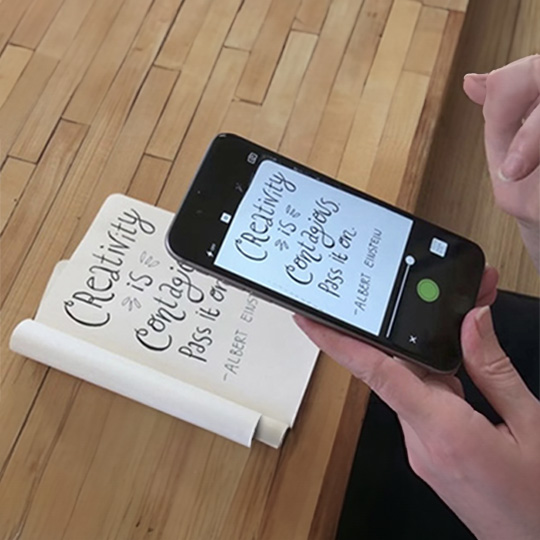 CReativity
is
Contagio
Pass it on
-ALBERT EINS
CReativity
is
Contagious.
Pass it on.
-ALBERT EINSTEIN